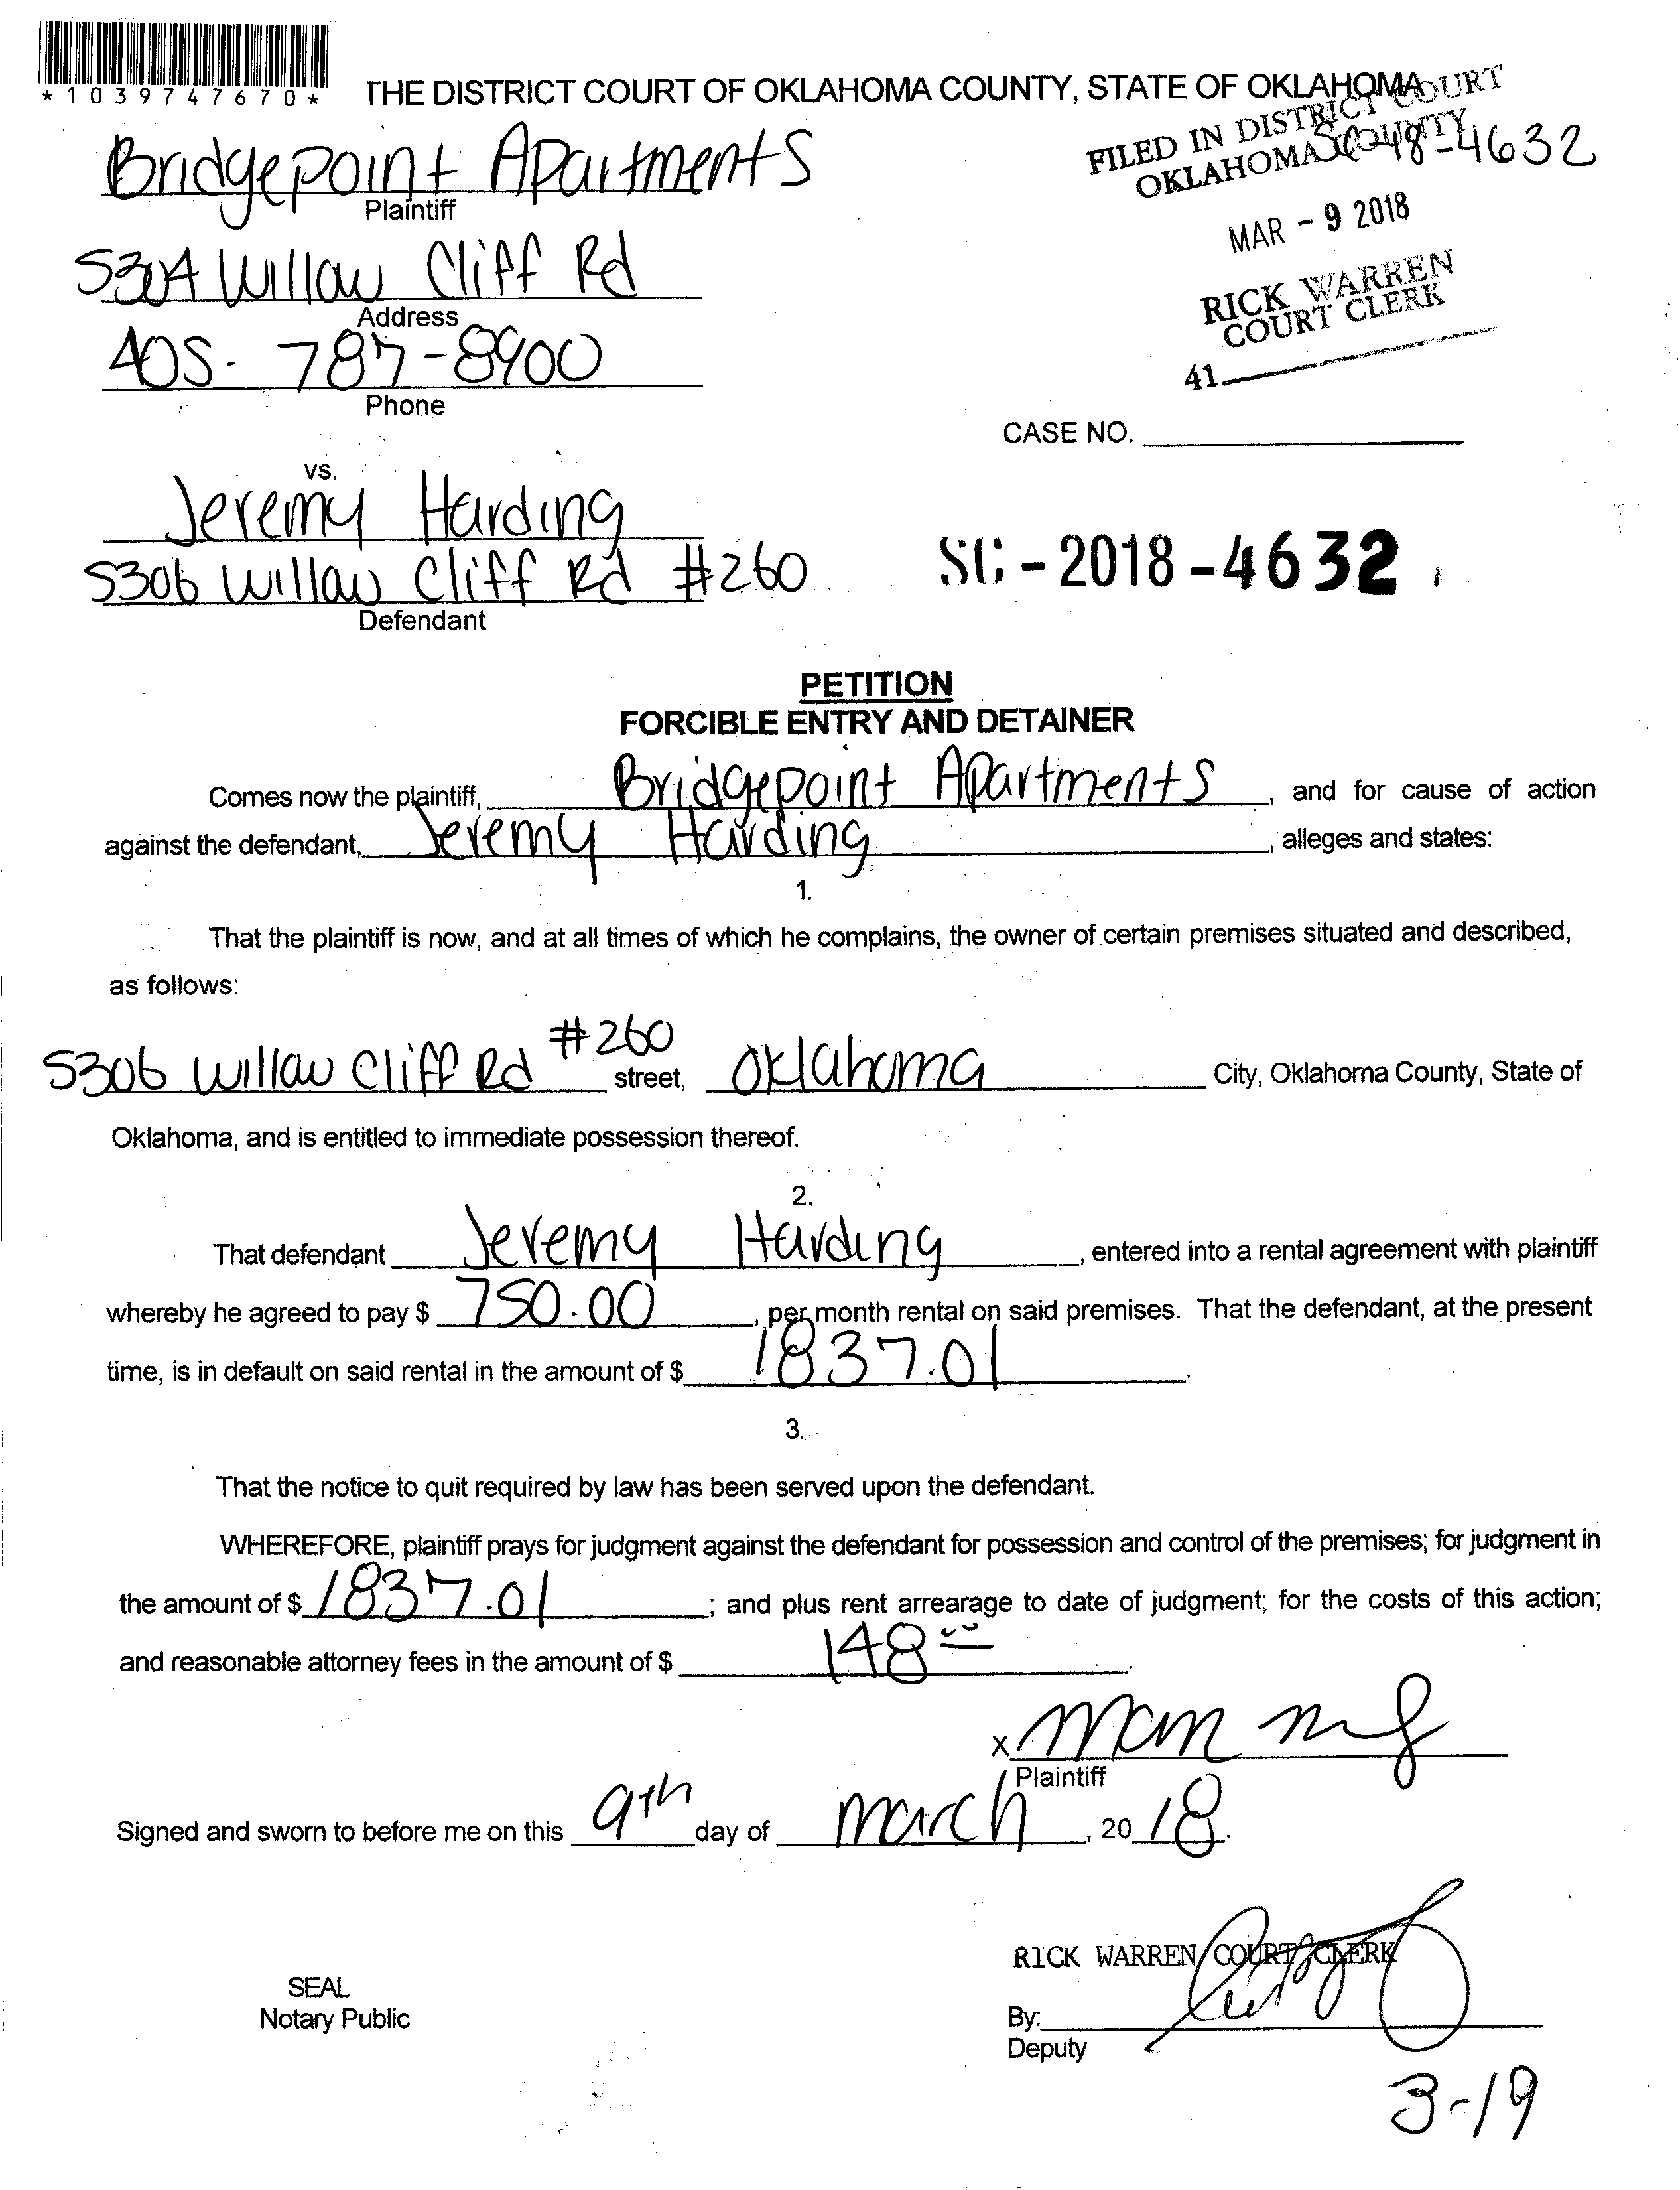 *1039747670*
THE DISTRICT COURT OF OKLAHOMA COUNTY, STATE OF OKLAHOMA
FILED IN DISTRICT COURT
OKLAHOMA COUNTY
SC-18-4632
MAR - 9 2018
RICK WARREN
COURT CLERK
41
Bridgepoint Apartments
Plaintiff
5304 Willow Cliff Rd
Address
405- 787-8900
Phone
CASE NO.
vs.
Jeremy Harding
5306 Willow Cliff Rd #260
Defendant
SC-2018-4632
PETITION
FORCIBLE ENTRY AND DETAINER
Comes now the plaintiff, Bridgepoint Apartments, and for cause of action
against the defendant, Jeremy Harding, alleges and states:
1.
That the plaintiff is now, and at all times of which he complains, the owner of certain premises situated and described,
as follows:
5306 Willow Cliff Rd #260 street, Oklahoma City, Oklahoma County, State of
Oklahoma, and is entitled to immediate possession thereof.
2.
That defendant Jeremy Harding, entered into a rental agreement with plaintiff
whereby he agreed to pay $ 750.00, per month rental on said premises. That the defendant, at the present
time, is in default on said rental in the amount of $ 1837.01.
3.
That the notice to quit required by law has been served upon the defendant.
WHEREFORE, plaintiff prays for judgment against the defendant for possession and control of the premises; for judgment in
the amount of $ 1837.01; and plus rent arrearage to date of judgment; for the costs of this action;
and reasonable attorney fees in the amount of $ 148.00.
X
Plaintiff
Signed and sworn to before me on this 9th day of March, 2018.
RICK WARREN COURT CLERK
SEAL
Notary Public
By:
Deputy
3-19